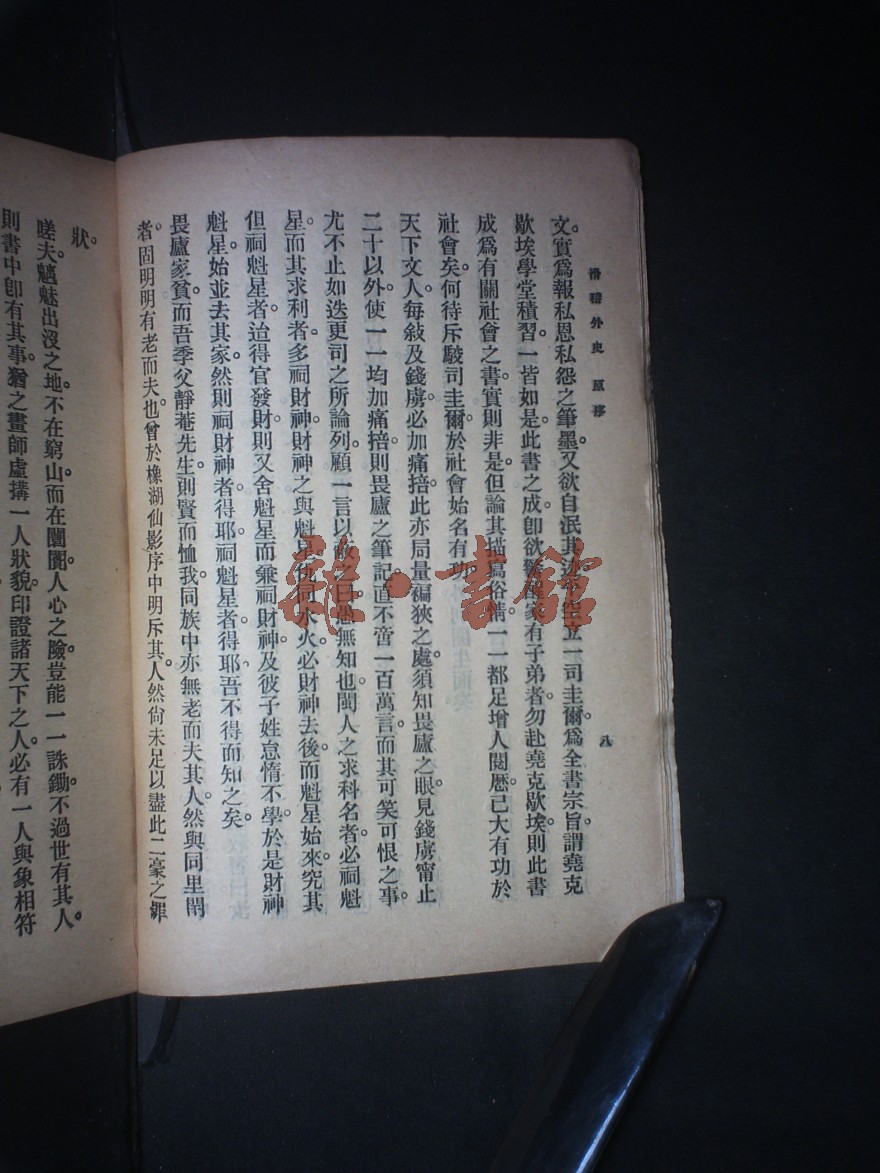 滑稽外史 原移
八
文。實爲報私恩私怨之筆墨。又欲自泯其迹。空立一司圭爾。爲全書宗旨。謂堯克
歇埃學堂積習。一皆如是。此書之成。卽欲 家有子弟者。勿赴堯克歇埃。則此書
成爲有關社會之書。實則非是。但論其描寫俗情。一一都足增人閱歷。已大有功於
社會矣。何待斥駿司圭爾。於社會始名有功
天下文人。每敍及錢虜。必加痛掊。此亦局量褊狹之處。須知畏廬之眼。見錢虜甯止
二十以外。使一一均加痛掊。則畏廬之筆記。直不啻一百萬言。而其可笑可恨之事。
尤不止如迭更司之所論列。顧一言以蔽之曰。愚無知也。閩人之求科名者。必祠魁
星。而其求利者。多祠財神。財神之與魁星。仇同水火。必財神去後。而魁星始來。究其
但祠魁星者。迨得官發財。則又舍魁星而兼祠財神。及彼子姓怠惰不學。於是財神
魁星。始並去其家。然則祠財神者得耶。祠魁星者得耶。吾不得而知之矣。
畏廬家貧。而吾季父靜菴先生。則賢而恤我。同族中亦無老而夫其人。然與同里閈
者。固明明有老而夫也。曾於橡湖仙影序中明斥其人。然尙未足以盡此二豪之罪
狀。
嗟夫。魑魅出沒之地。不在窮山。而在闤闠。人心之險。豈能一一誅鋤。不過世有其人。
則書中卽有其事。猶之畫師虛搆一人狀貌。印證諸天下之人。必有一人與象相符
雜·書館